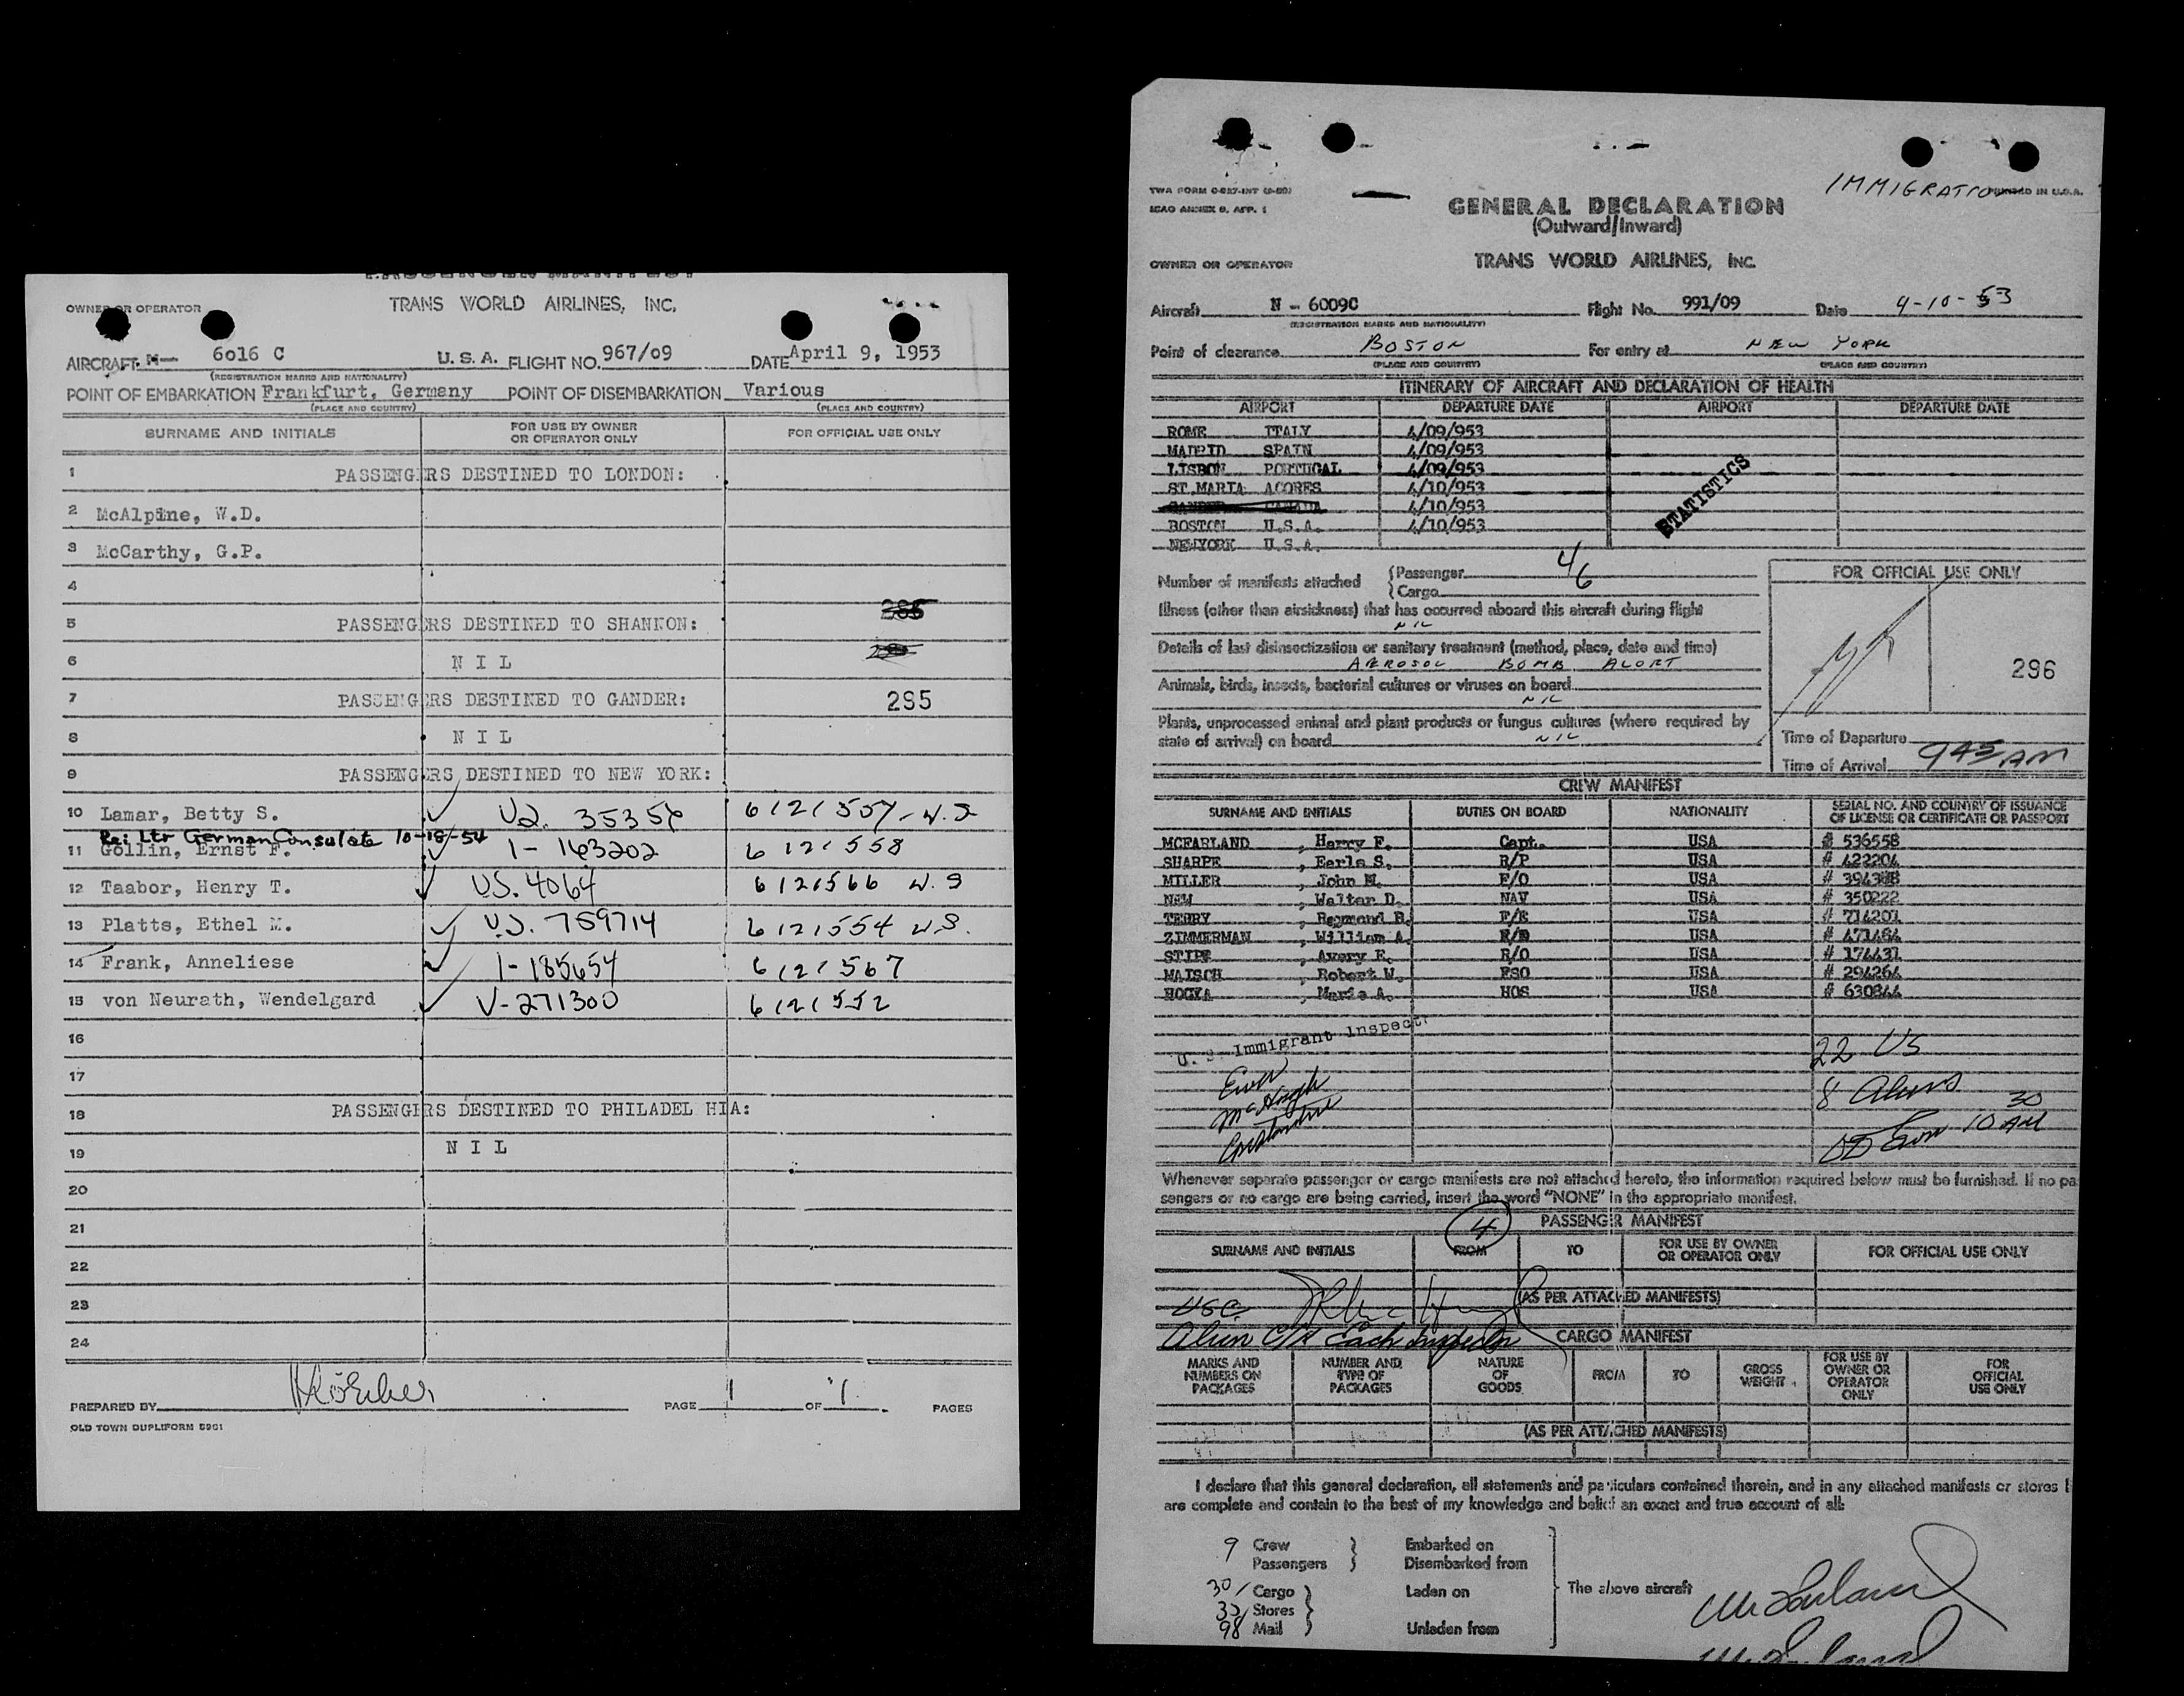 PASSENGER MANIFEST
OWNER OR OPERATOR TRANS WORLD AIRLINES, INC.
AIRCRAFT N— 6016 C U. S. A. FLIGHT NO. 967/09 DATE April 9, 1953
(REGISTRATION MARKS AND NATIONALITY)
POINT OF EMBARKATION Frankfurt, Germany POINT OF DISEMBARKATION Various
(PLACE AND COUNTRY) (PLACE AND COUNTRY)
SURNAME AND INITIALS FOR USE BY OWNER OR OPERATOR ONLY FOR OFFICIAL USE ONLY
1 PASSENGERS DESTINED TO LONDON:
2 McAlpine, W.D.
3 McCarthy, G.P.
4
5 PASSENGERS DESTINED TO SHANNON:
6 N I L
7 PASSENGERS DESTINED TO GANDER: 295
8 N I L
9 PASSENGERS DESTINED TO NEW YORK:
10 Lamar, Betty S. ✓ US. 35356 6121557 - W.S
Re: Ltr German Consulate 10-18-54
11 Gollin, Ernst F. ✓ I-163202 6121558
12 Taabor, Henry T. ✓ US. 4064 6121566 W.S
13 Platts, Ethel M. ✓ U.S. 759714 6121554 W.S.
14 Frank, Anneliese ✓ I-185654 6121567
15 von Neurath, Wendelgard ✓ V-271300 6121552
16
17
18 PASSENGERS DESTINED TO PHILADEL HIA:
19 N I L
20
21
22
23
24
PREPARED BY PAGE 1 OF 1 PAGES
OLD TOWN DUPLIFORM 5961
TWA FORM O-827-INT IMMIGRATION PRINTED IN U.S.A.
ICAO ANNEX 9, APP. 1
GENERAL DECLARATION
(Outward/Inward)
OWNER OR OPERATOR TRANS WORLD AIRLINES, INC.
Aircraft N - 6009C Flight No. 991/09 Date 4-10-53
(REGISTRATION MARKS AND NATIONALITY)
Point of clearance BOSTON For entry at NEW YORK
(PLACE AND COUNTRY) (PLACE AND COUNTRY)
ITINERARY OF AIRCRAFT AND DECLARATION OF HEALTH
AIRPORT DEPARTURE DATE AIRPORT DEPARTURE DATE
ROME ITALY 4/09/953
MADRID SPAIN 4/09/953
LISBON PORTUGAL 4/09/953
ST.MARIA ACORES 4/10/953
GANDER CANADA 4/10/953
BOSTON U.S.A. 4/10/953
NEWYORK U.S.A.
STATISTICS
Number of manifests attached { Passenger 4
{ Cargo 6
FOR OFFICIAL USE ONLY
Illness (other than airsickness) that has occurred aboard this aircraft during flight
NIL
Details of last disinsectization or sanitary treatment (method, place, date and time)
AEROSOL BOMB ALOFT
296
Animals, birds, insects, bacterial cultures or viruses on board
NIL
Plants, unprocessed animal and plant products or fungus cultures (where required by
state of arrival) on board NIL
Time of Departure
Time of Arrival 945 AM
CREW MANIFEST
SURNAME AND INITIALS DUTIES ON BOARD NATIONALITY SERIAL NO. AND COUNTRY OF ISSUANCE OF LICENSE OR CERTIFICATE OR PASSPORT
MCFARLAND , Harry F. Capt. USA # 536558
SHARPE , Earle S. R/P USA # 422204
MILLER , John N. F/O USA
NEW , Walter D. NAV USA # 350222
TERRY , Raymond B. F/E USA # 714201
ZIMMERMAN , William A. USA # 471464
STIPE , Avery E. R/O USA # 174431
MAISCH , Robert W. FSO USA # 294264
HOCKA , Marie A. HOS USA # 630844
U. S. Immigrant Inspect
22 US
8 Aliens
10 30 AM
Whenever separate passenger or cargo manifests are not attached hereto, the information required below must be furnished. If no pa
sengers or no cargo are being carried, insert the word "NONE" in the appropriate manifest.
4 PASSENGER MANIFEST
SURNAME AND INITIALS FROM TO FOR USE BY OWNER OR OPERATOR ONLY FOR OFFICIAL USE ONLY
(AS PER ATTACHED MANIFESTS)
USC
CARGO MANIFEST
MARKS AND NUMBERS ON PACKAGES NUMBER AND TYPE OF PACKAGES NATURE OF GOODS FROM TO GROSS WEIGHT FOR USE BY OWNER OR OPERATOR ONLY FOR OFFICIAL USE ONLY
(AS PER ATTACHED MANIFESTS)
I declare that this general declaration, all statements and particulars contained therein, and in any attached manifests or stores l
are complete and contain to the best of my knowledge and belief an exact and true account of all:
9 Crew } Embarked on
Passengers } Disembarked from
30 Cargo } Laden on The above aircraft McFarland
Stores }
98 Mail } Unladen from